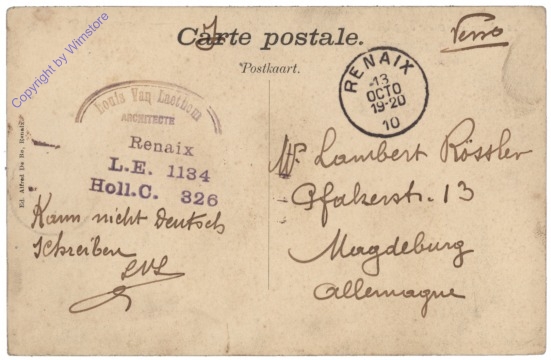 Carte postale.
Verso
*Postkaart.
Copyright by Wimstore
Louis Van
ARCHITECTE
Renaix
L.E. 1134
Holl.C. 326
RENAIX
13
OCTO
19-20
10
Ed. Alfred De Bo, Renaix
Mr. Lambert Rössler
Pfalzerstr. 13
Magdeburg
Allemagne
Kann nicht Deutsch
Schreiben